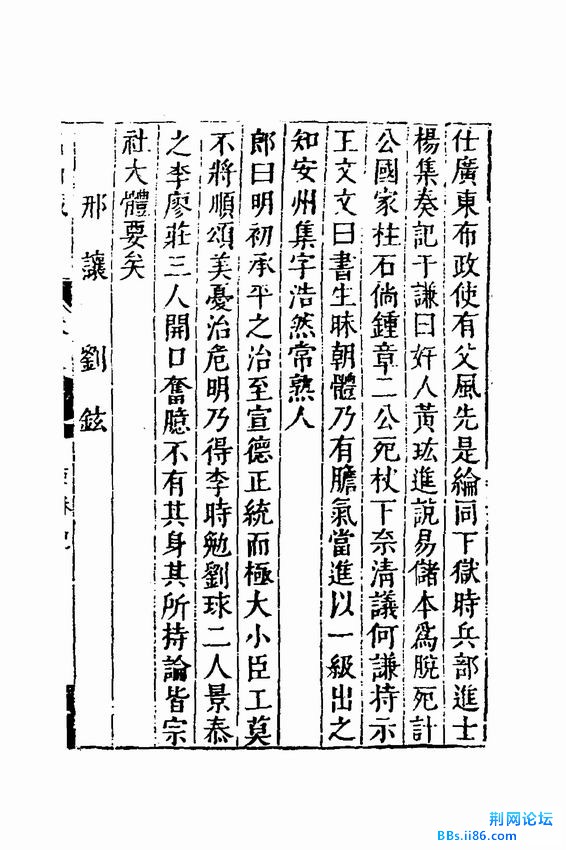 仕廣東布政使有父風先是綸同下獄時兵部進士
楊集奏記于謙曰奸人黃玹進說易儲本爲脫死計
公國家柱石倘鍾章二公死杖下奈清議何謙持示
王文文曰書生昧朝體乃有膽氣當進以一級出之
知安州集字浩然常熟人
郎曰明初承平之治至宣德正統而極大小臣工莫
不將順頌美憂治危明乃得李時勉劉球二人景泰
之李廖莊三人開口奮臆不有其身其所持論皆宗
社大體要矣
邢讓 劉鉉
荆网论坛
BBs.ii86.com